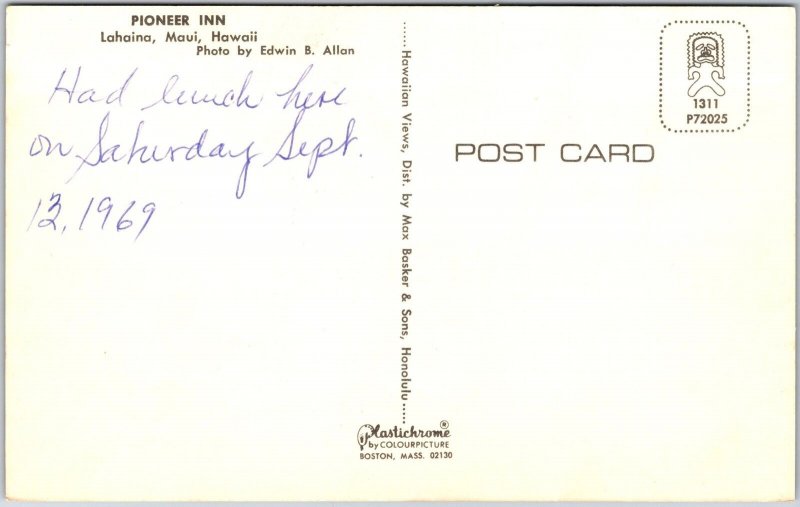 PIONEER INN
Lahaina, Maui, Hawaii
Photo by Edwin B. Allan
Had lunch here
on Saturday Sept.
13, 1969
Hawaiian Views, Dist. by Max Basker & Sons, Honolulu
1311
P72025
POST CARD
Plastichrome®
by COLOURPICTURE
BOSTON, MASS. 02130